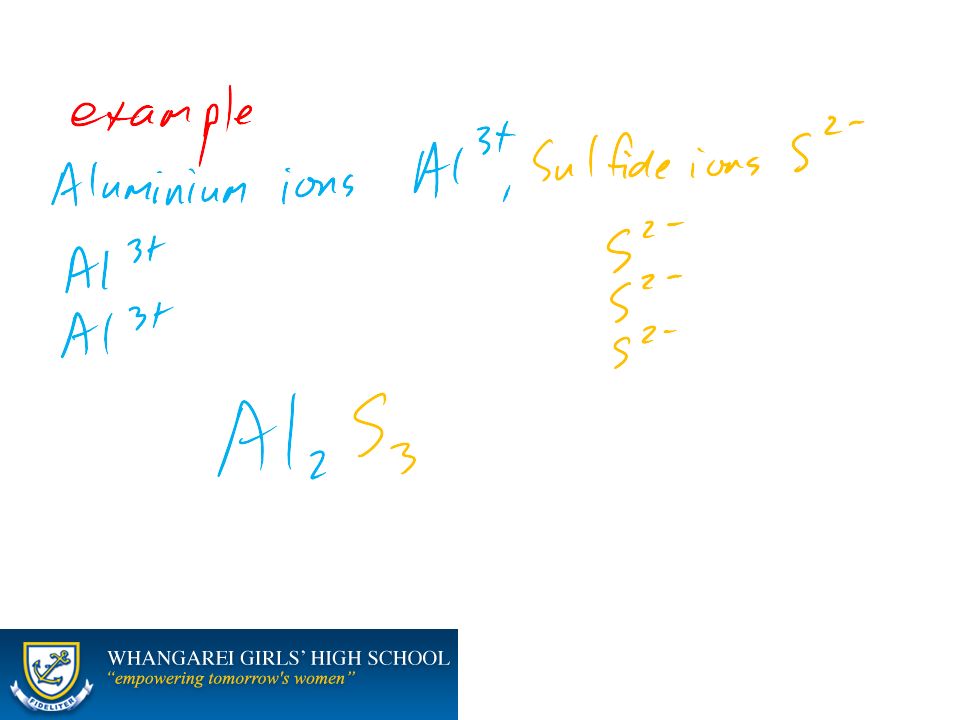 example
Aluminium ions Al³⁺, Sulfide ions S²⁻
Al³⁺ S²⁻
Al³⁺ S²⁻
S²⁻
Al₂S₃
WHANGAREI GIRLS’ HIGH SCHOOL
“empowering tomorrow's women”
FIDELITER